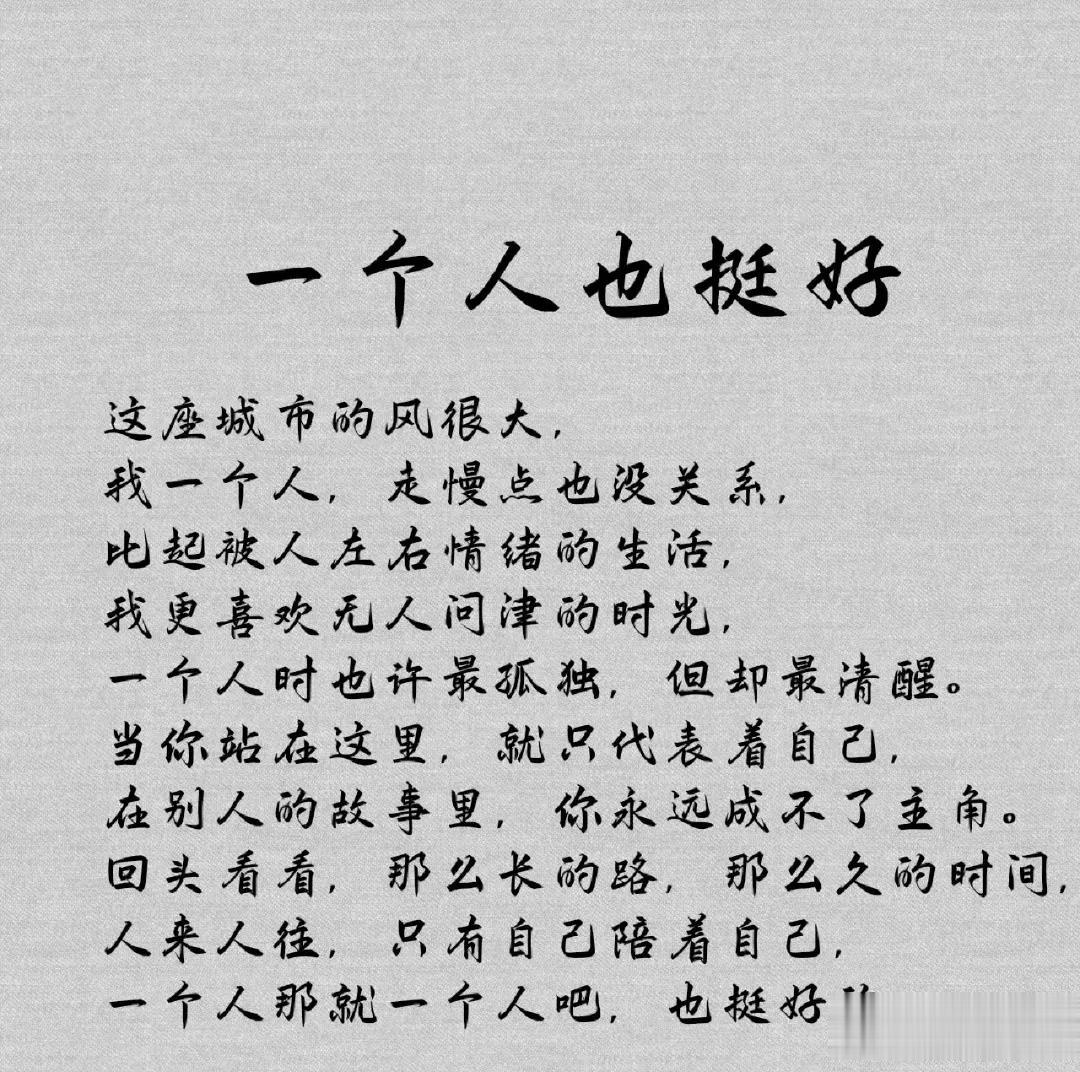 一个人也挺好
这座城市的风很大,
我一个人, 走慢点也没关系,
比起被人左右情绪的生活,
我更喜欢无人问津的时光,
一个人时也许最孤独, 但却最清醒。
当你站在这里, 就只代表着自己,
在别人的故事里, 你永远成不了主角。
回头看看, 那么长的路, 那么久的时间,
人来人往, 只有自己陪着自己,
一个人那就一个人吧, 也挺好